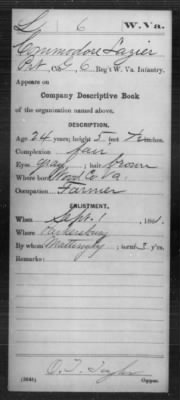 L 6 W. Va.
Commodore Lazier
Pvt, Co. G, 6 Reg't W. Va. Infantry.
Appears on
Company Descriptive Book
of the organization named above.
DESCRIPTION.
Age 24 years; height 5 feet inches.
Complexion fair
Eyes gray; hair brown
Where born Wood Co. Va.
Occupation Farmer
ENLISTMENT.
When Sept. 1, 1861.
Where Parkersburg
By whom Mattingly; term 3 y'rs.
Remarks:
(364b) Copyist.